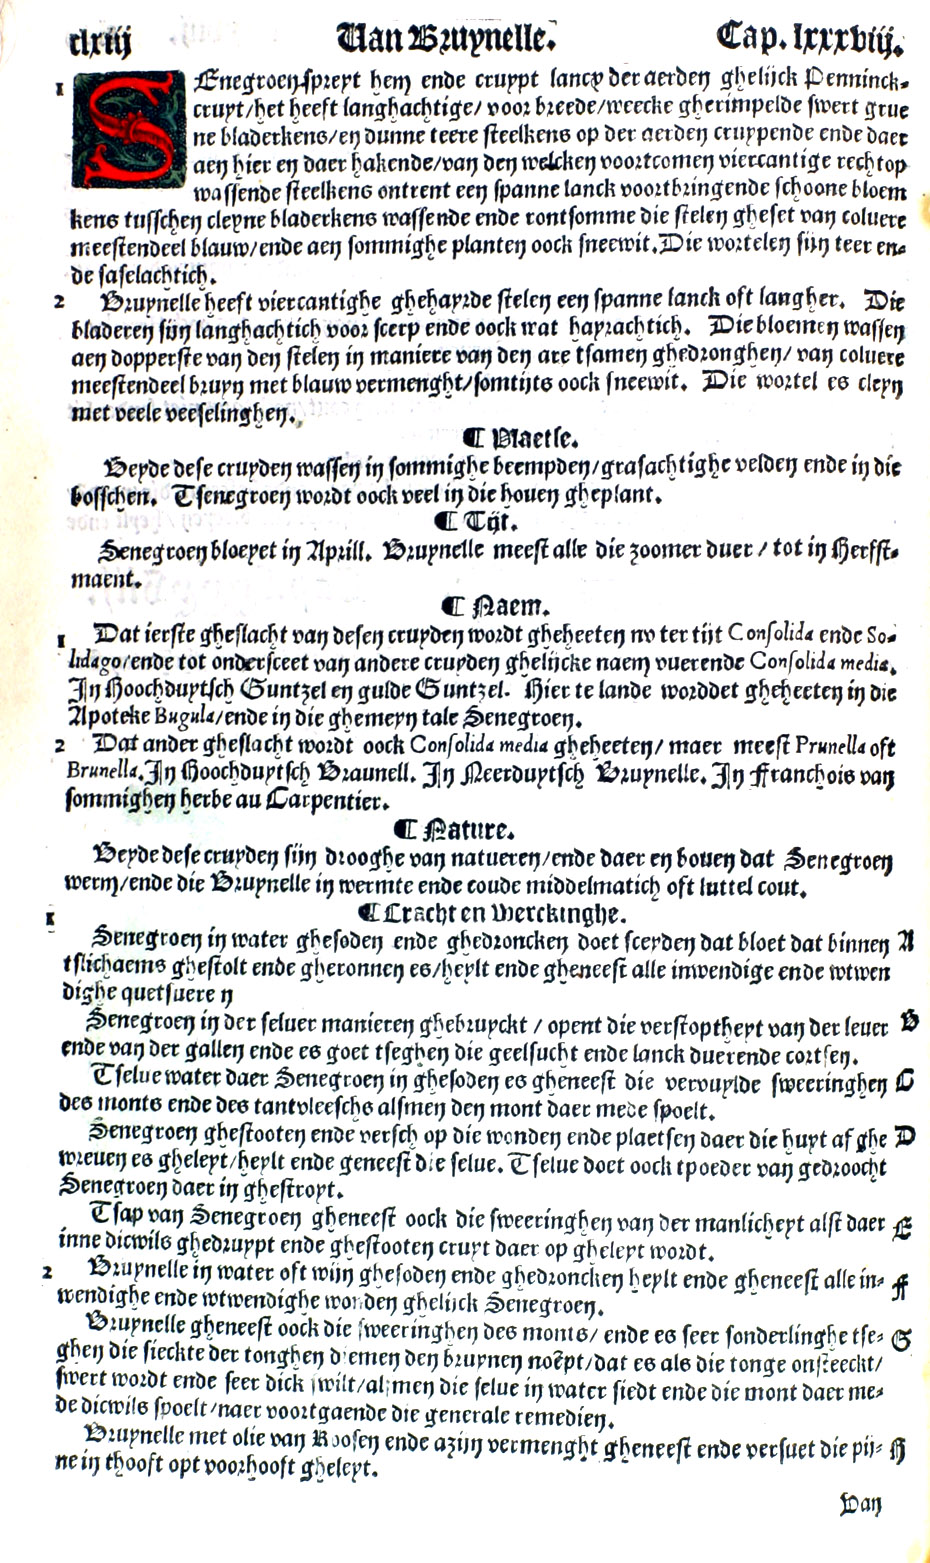 clxiij Van Bruynelle. Cap. lxxxviij.
1 SEnegroen spreyt hem ende cruypt lancx der aerden ghelijck Penninck-
cruyt/het heeft langhachtige/ voor breede/weecke gherimpelde swert grue
ne bladerkens/en dunne teere steelkens op der aerden cruypende ende daer
aen hier en daer hakende/van den welcken voortcomen viercantige rechtop
wassende steelkens ontrent een spanne lanck voortbringende schoone bloem
kens tusschen cleyne bladerkens wassende ende rontsomme die stelen gheset van coluere
meestendeel blauw/ende aen sommighe planten oock sneewit. Die wortelen sijn teer en-
de faselachtich.
2 Bruynelle heeft viercantighe ghehayrde stelen een spanne lanck oft langher. Die
bladeren sijn langhachtich voor scerp ende oock wat hayrachtich. Die bloemen wassen
aen dopperste van den stelen in maniere van den are tsamen ghedronghen/ van coluere
meestendeel bruyn met blauw vermenght/somtijts oock sneewit. Die wortel es cleyn
met veele veeselinghen.
¶ Plaetse.
Beyde dese cruyden wassen in sommighe beempden/grasachtighe velden ende in die
bosschen. Tsenegroen wordt oock veel in die houen gheplant.
¶ Tijt.
Senegroen bloeyet in Aprill. Bruynelle meest alle die zoomer duer / tot in Herfst-
maent.
¶ Naem.
1 Dat ierste gheslacht van desen cruyden wordt gheheeten nv ter tijt Consolida ende So-
lidago/ende tot ondersceet van andere cruyden ghelijcke naem vuerende Consolida media.
In Hoochduytsch Guntzel en gulde Guntzel. Hier te lande worddet gheheeten in die
Apoteke Bugula/ende in die ghemeyn tale Senegroen.
2 Dat ander gheslacht wordt oock Consolida media gheheeten/ maer meest Prunella oft
Brunella. In Hoochduytsch Braunell. In Neerduytsch Bruynelle. In Franchois van
sommighen herbe au Carpentier.
¶ Nature.
Beyde dese cruyden sijn drooghe van natueren/ende daer en bouen dat Senegroen
werm/ende die Bruynelle in wermte ende coude middelmatich oft luttel cout.
¶ Cracht en Werckinghe.
1 Senegroen in water ghesoden ende ghedroncken doet sceyden dat bloet dat binnen A
tslichaems ghestolt ende gheronnen es/heylt ende gheneest alle inwendige ende wtwen
dighe quetsuere n
Senegroen in der seluer manieren ghebruyckt / opent die verstoptheyt van der leuer B
ende van der gallen ende es goet tseghen die geelsucht ende lanck duerende cortsen.
Tselue water daer Senegroen in ghesoden es gheneest die vervuylde sweeringhen C
des monts ende des tantvleeschs alsmen den mont daer mede spoelt.
Senegroen ghestooten ende versch op die wonden ende plaetsen daer die huyt af ghe D
wreuen es gheleyt/heylt ende geneest die selue. Tselue doet oock tpoeder van gedroocht
Senegroen daer in ghestroyt.
Tsap van Senegroen gheneest oock die sweeringhen van der manlicheyt alst daer E
inne dicwils ghedruypt ende ghestooten cruyt daer op gheleyt wordt.
2 Bruynelle in water oft wijn ghesoden ende ghedroncken heylt ende gheneest alle in- F
wendighe ende wtwendighe wonden ghelijck Senegroen.
Bruynelle gheneest oock die sweeringhen des monts/ ende es seer sonderlinghe tse- G
ghen die sieckte der tonghen diemen den bruynen noẽpt/dat es als die tonge onsteeckt/
swert wordt ende seer dick swilt/alsmen die selue in water siedt ende die mont daer me-
de dicwils spoelt/naer voortgaende die generale remedien.
Bruynelle met olie van Roosen ende azijn vermenght gheneest ende versuet die pij- H
ne in thooft opt voorhooft gheleyt.
Van